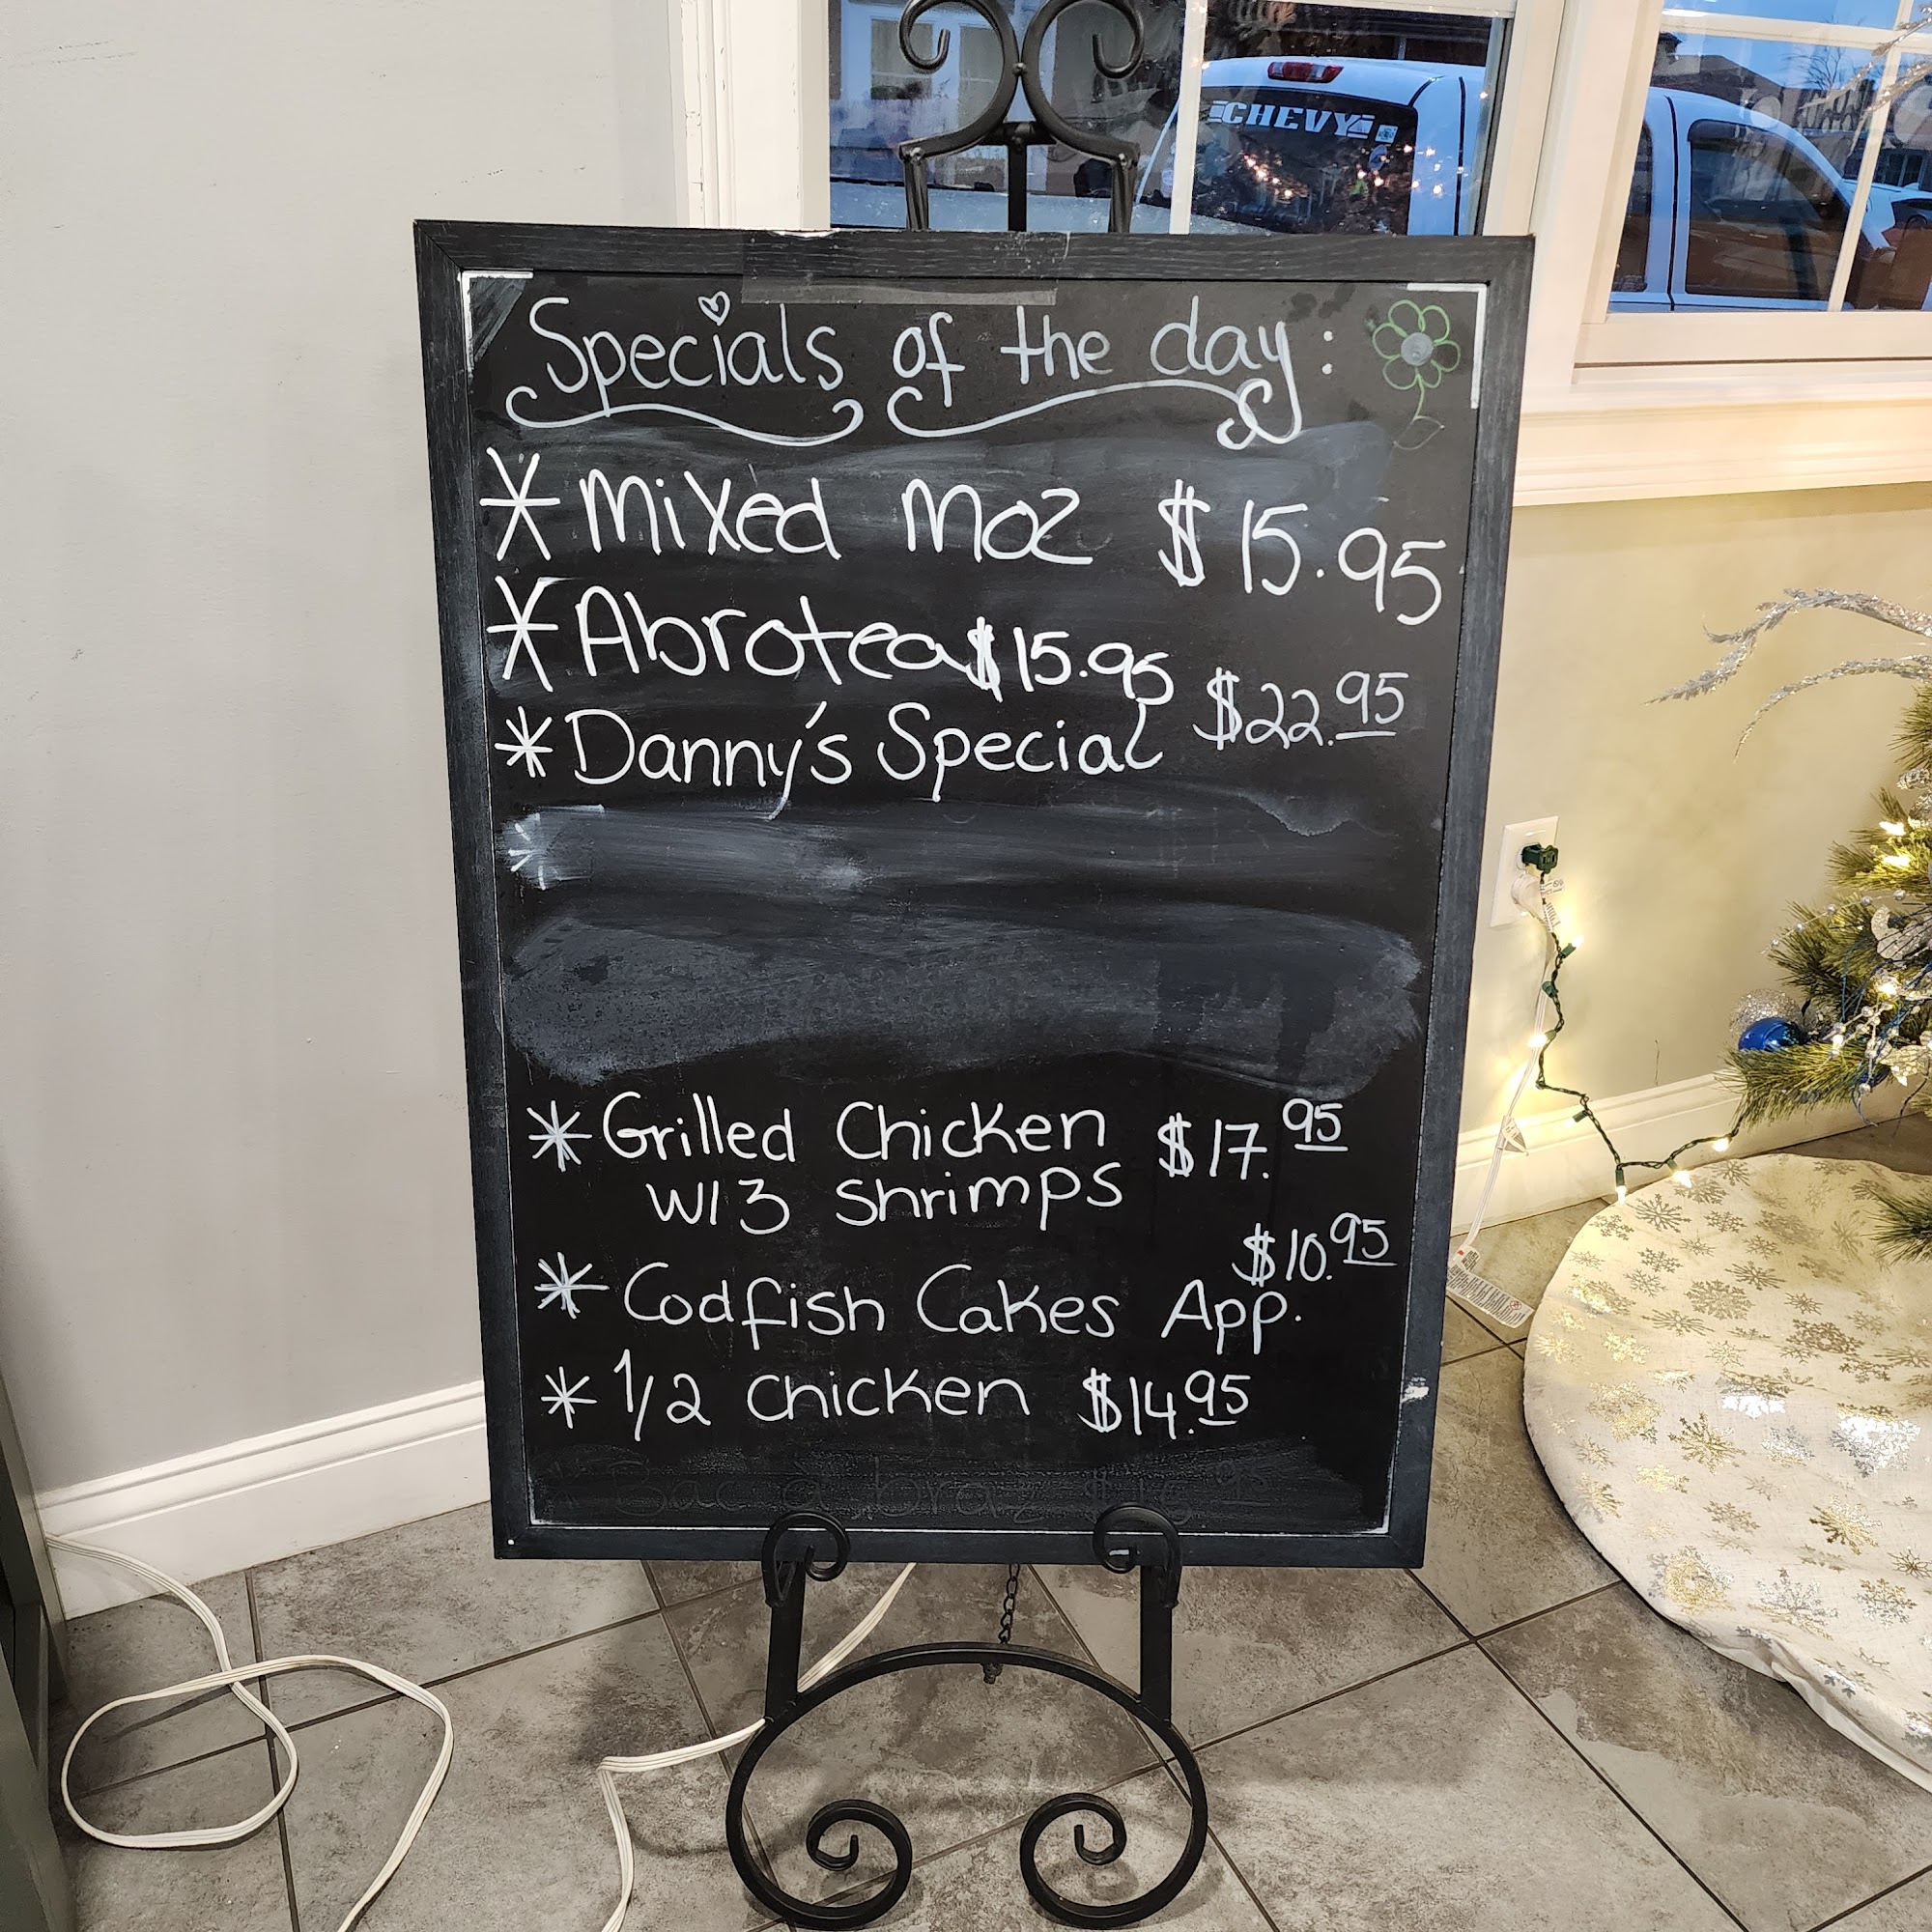 CHEVY
Specials of the day:
* Mixed Moz $15.95
* Abrotea $15.95
* Danny's Special $22.95
*
* Grilled Chicken $17.95
W/3 Shrimps
* Codfish Cakes App. $10.95
* 1/2 Chicken $14.95
Bac à braz